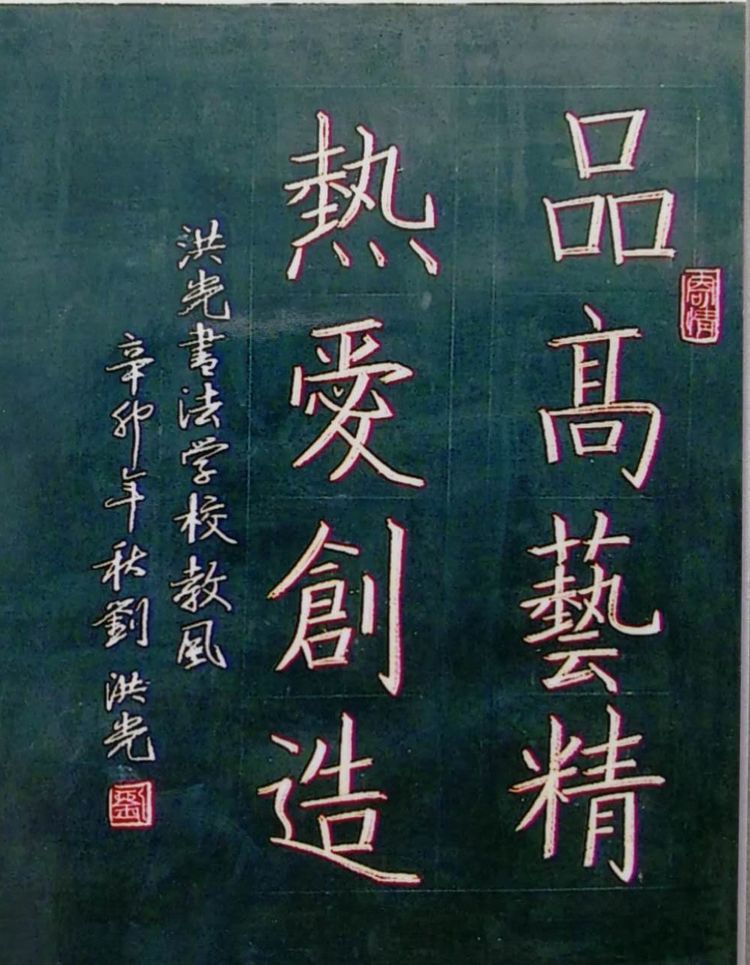 品高藝精
寄情
熱愛創造
洪光書法学校教風
辛卯年秋劉洪光
劉